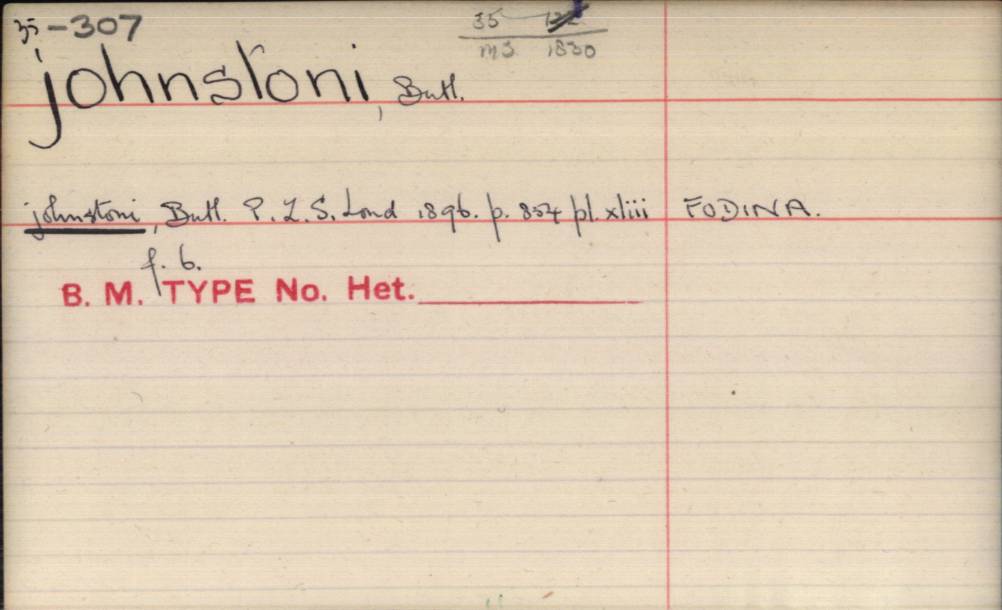 35-307
35
MS 1830
johnstoni, Butl.
johnstoni, Butl. P. Z. S. Lond 1896. p. 854 pl. xliii FODINA.
f. 6.
B. M. TYPE No. Het.